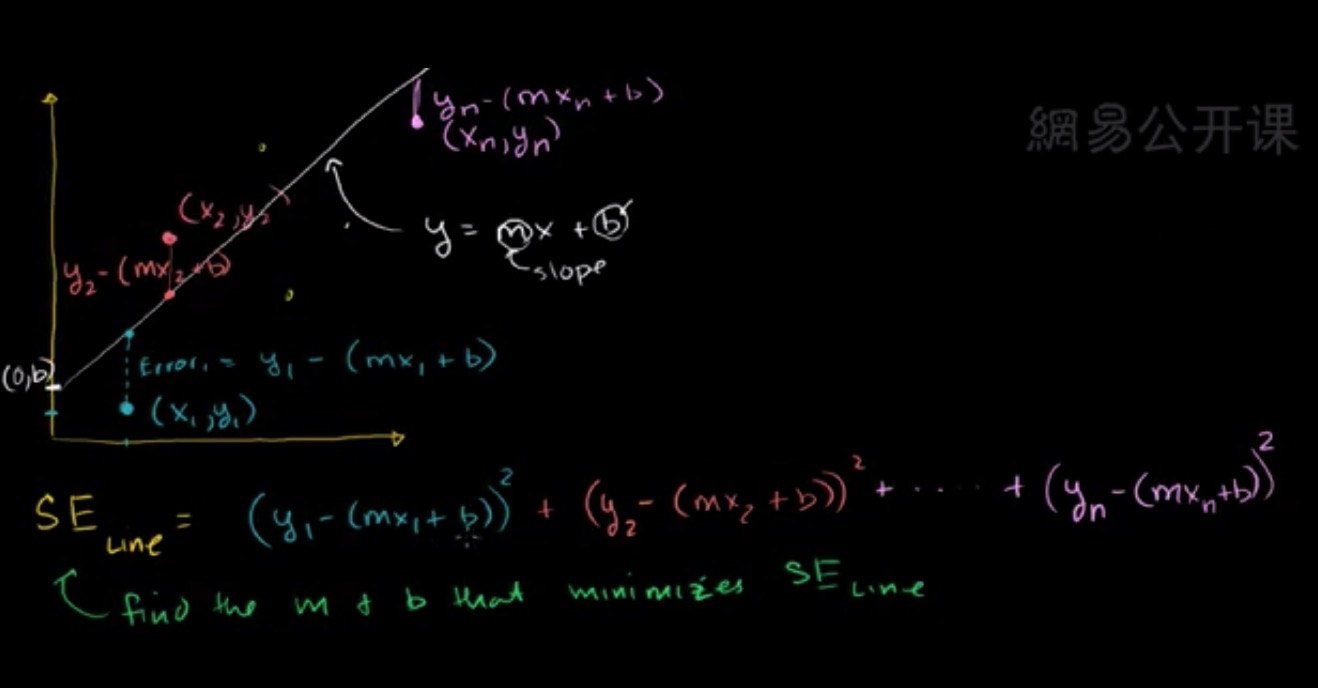 網易公开课
yₙ - (mxₙ + b)
(xₙ, yₙ)
(x₂, y₂)
y = mx + b
slope
y₂ - (mx₂ + b)
Error₁ = y₁ - (mx₁ + b)
(0,b)
(x₁, y₁)
SE Line = (y₁ - (mx₁ + b))² + (y₂ - (mx₂ + b))² + ····· + (yₙ - (mxₙ + b))²
find the m & b that minimizes SE Line